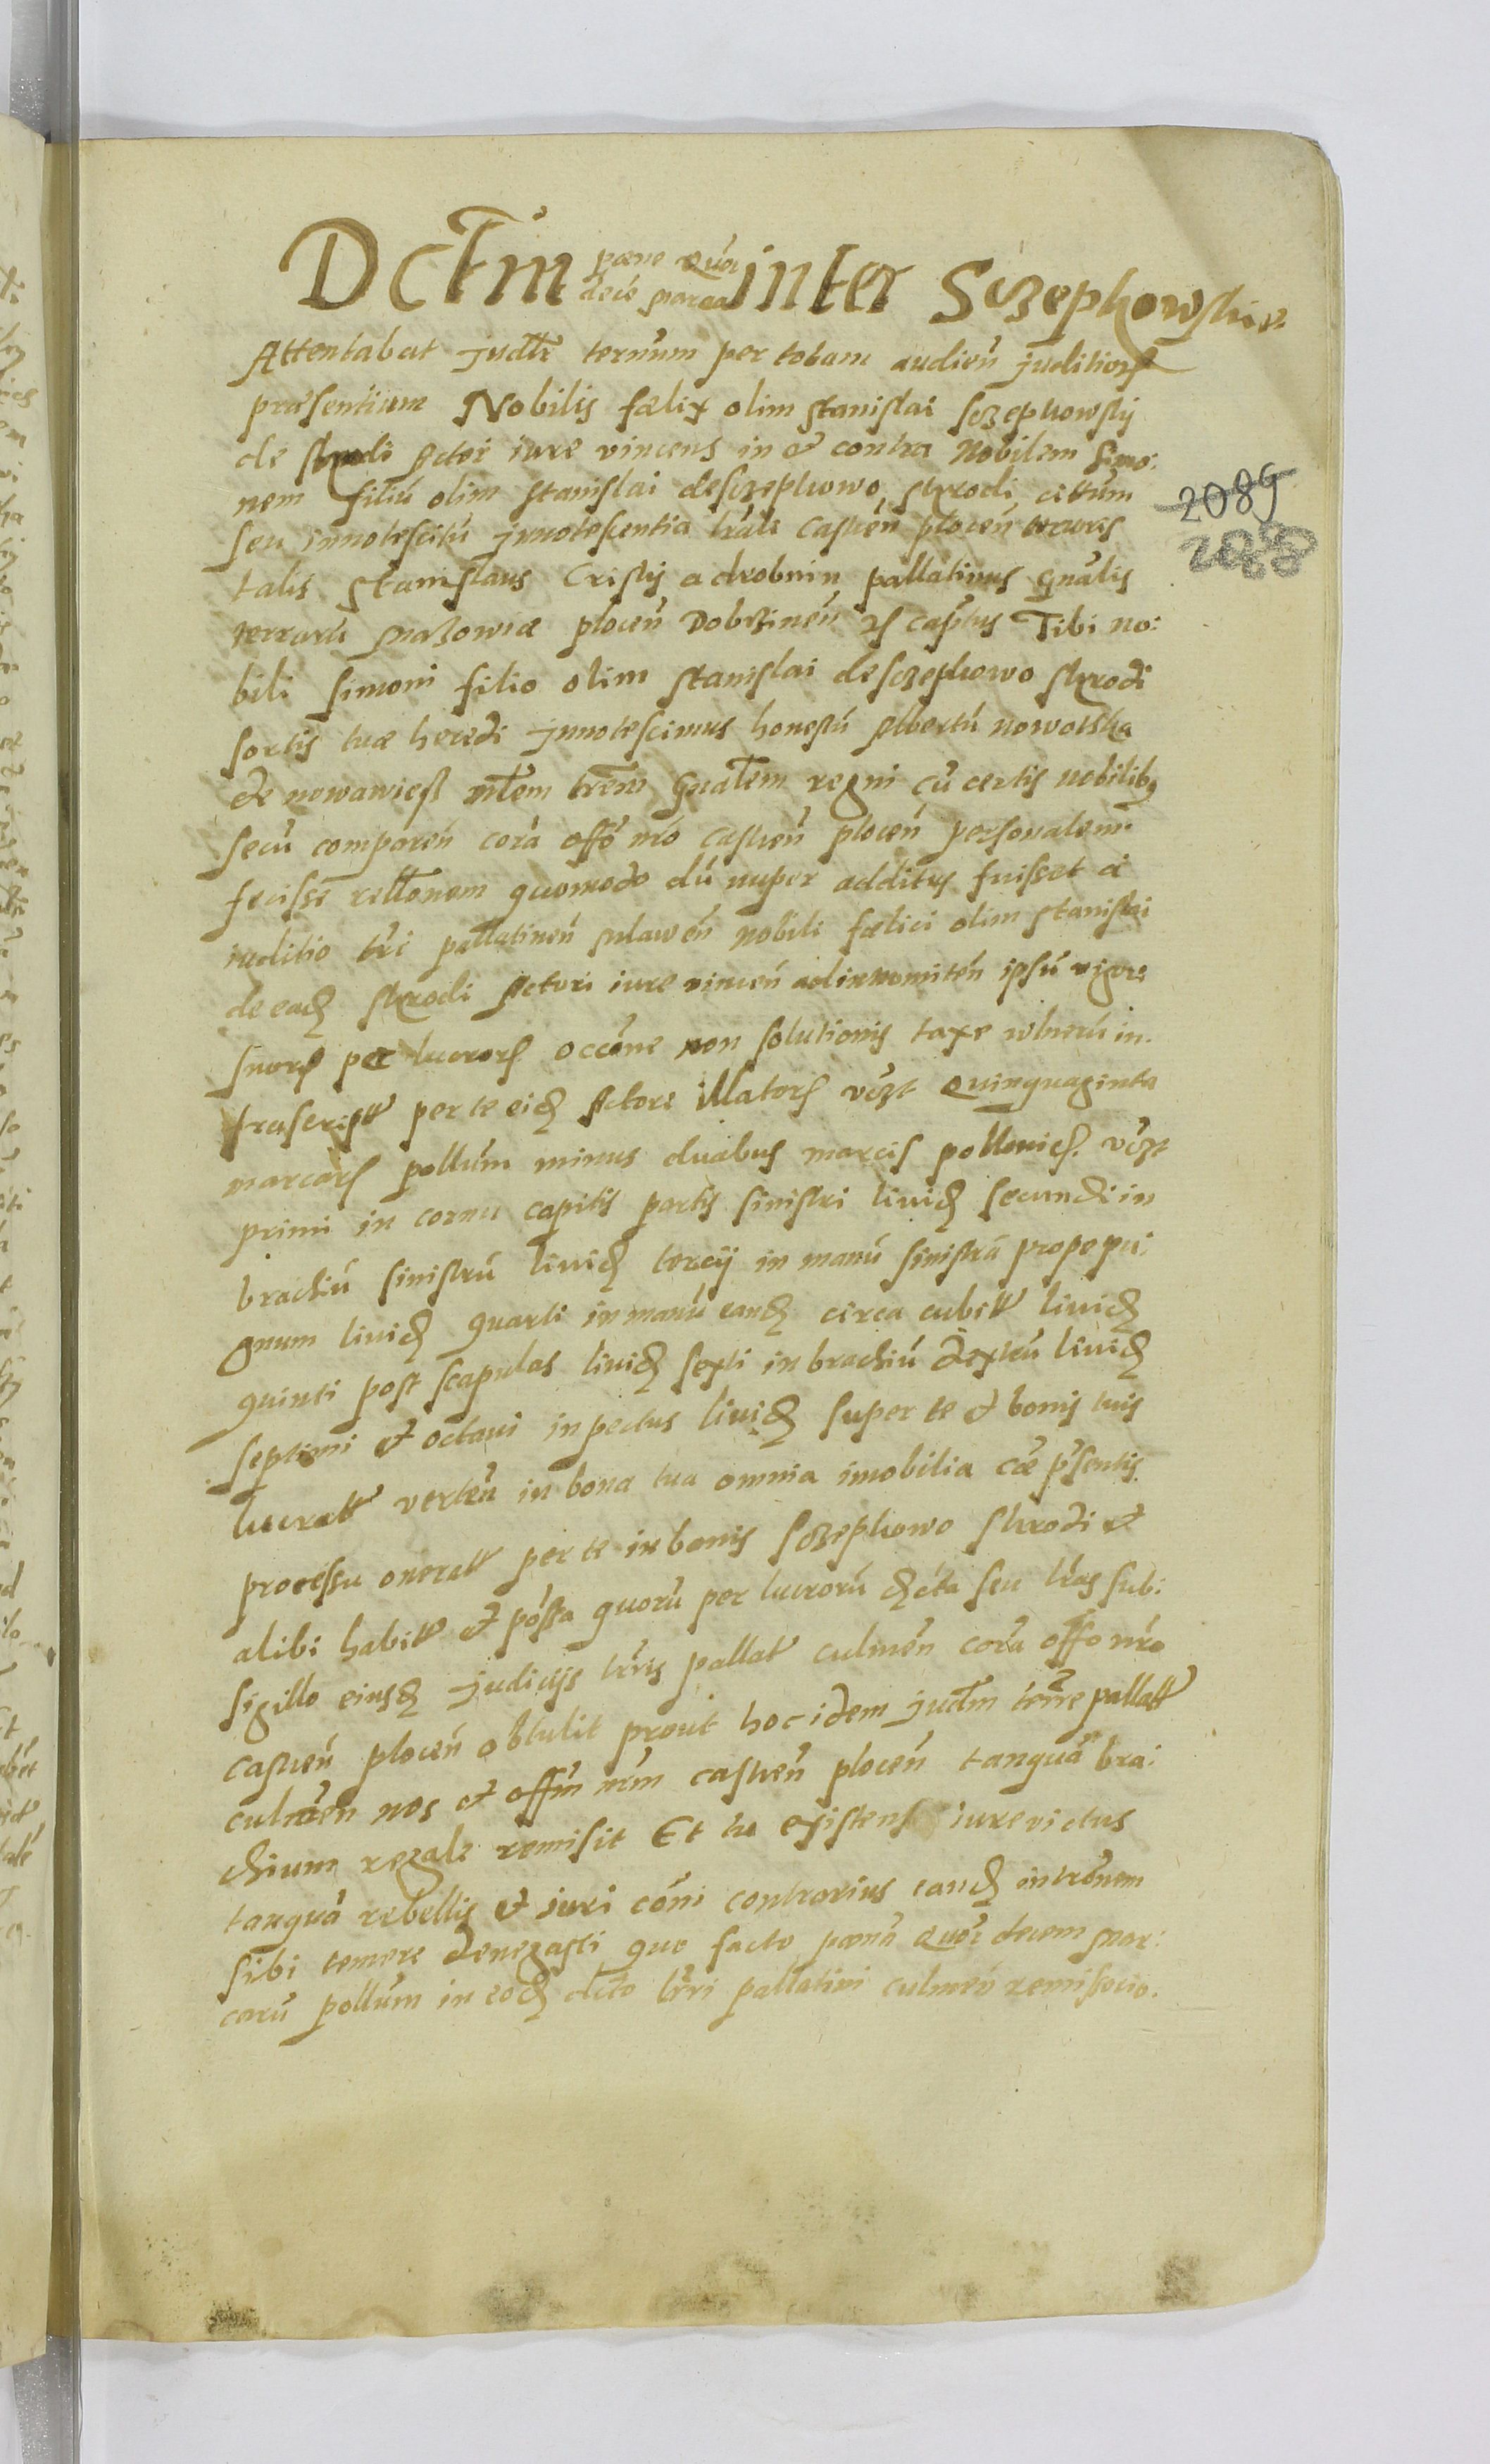 Dctm pœne Quor decē marcar inter Sczepkowskie
Attentabat judtr ternum per totam audien̄ juditiorꝝ
præsentium Nobilis fœlix olim stanislai sczepkowsky
de skrodi Actor iure vincens in et contra Nobilem Simo:
nem filiū olim stanislai de sczepkowo skrodi cittum
seu innotescitū jnnotescentia trali castren̄ plocen̄
talis Stanislaus Crisky a drobnin pallatinus gnālis
terrarū Mazowiæ plocen̄ Dobrzinen̄ capītus Tibi no:
bili simoni filio olim stanislai de sczepkowo skrodi
sortis tuæ heredi jnnotescimus honestū Albertū nowotka
de nowawiesz mtem trem gnalem regni cū certis nobilibꝫ
secū comparen̄ corā offo nro castren̄ plocen̄ personalem
fecisse rellonem quomodo dū nuper additus fuisset a
iuditio trī pallatinen̄ Mlawen̄ nobili fœlici olim stanislai
de eadꝫ skrodi Actori iure vincen̄ ad intromitten̄ ipsū vigore
suorꝝ per lucrorꝝ occōne non solutionis taxe vlnerū in
frascript per te eidꝫ Actori illatorꝝ vczt Quinquaginta
marcarꝝ pollūm minus duabus marcis pollonicꝫ vczt
primi in cornu capitis partis sinistri lividꝫ secundi in
brachiū sinistrū lividꝫ tercij in manū sinistrā prope pu:
gnum lividꝫ quarti in manū eandꝫ circa cubitt lividꝫ
quinti post scapulas lividꝫ sexti in brachiū dextrū lividꝫ
septimi et octaui in pectus lividꝫ super te et bonis tuis
lucratt verten̄ in bona tua omnia imobilia cāe pn̄sentis
processu oneratt per te in bonis sczepkowo skrodi et
alibi habitt et pōssa quorū per lucrorū dcta seu lrās sub:
sigillo eiusdꝫ judicijs trris pallat culmen̄ corā offo nro
castren̄ plocen̄ obtulit prout hoc idem judm terre pallatt
culmen̄ nos et offm nrm castren̄ plocen̄ tanquā bra:
chium regale remisit Et tu existens iure victus
tanquā rebellis et iuri cōmi contrarius eandꝫ intrōnem
sibi temere denegasti quo facto pœnā Quor decem Mar:
carū pollūm in eodꝫ dcto trri pallatini culmen̄ remissorio.
2089
2088